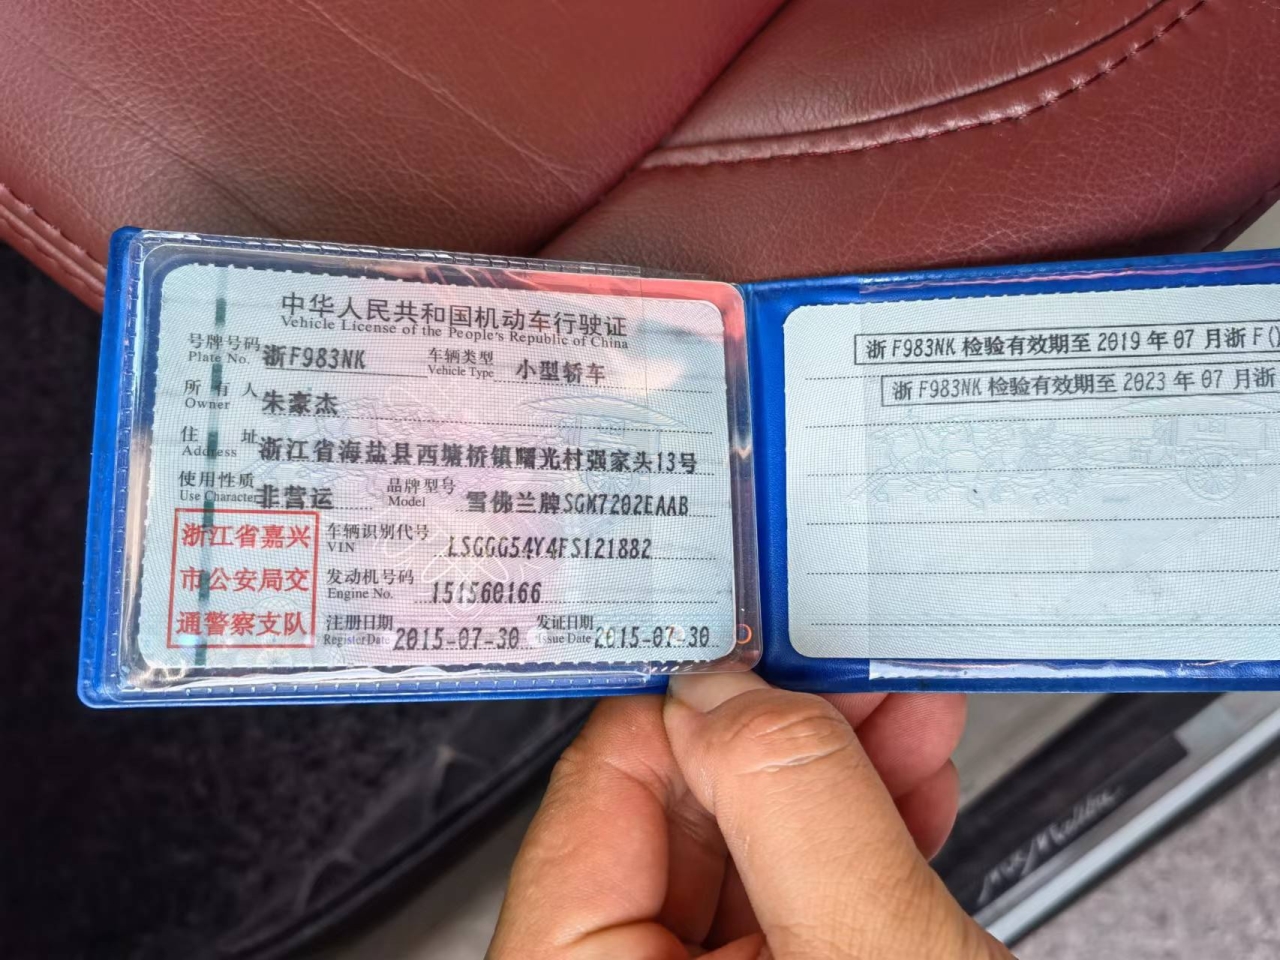 中华人民共和国机动车行驶证
Vehicle License of the People's Republic of China
号牌号码 浙F983NK 车辆类型 小型轿车
Plate No. Vehicle Type
所有人 朱豪杰
Owner
住址 浙江省海盐县西塘桥镇曙光村强家头13号
Address
使用性质 非营运 品牌型号 雪佛兰牌SGM7202EAAB
Use Character Model
浙江省嘉兴
市公安局交
通警察支队
车辆识别代号 LSGGG54Y4FS121882
VIN
发动机号码 151560166
Engine No.
注册日期 2015-07-30 发证日期 2015-07-30
Register Date Issue Date
浙F983NK 检验有效期至 2019 年 07 月浙F(
浙F983NK 检验有效期至 2023 年 07 月浙
Malibu